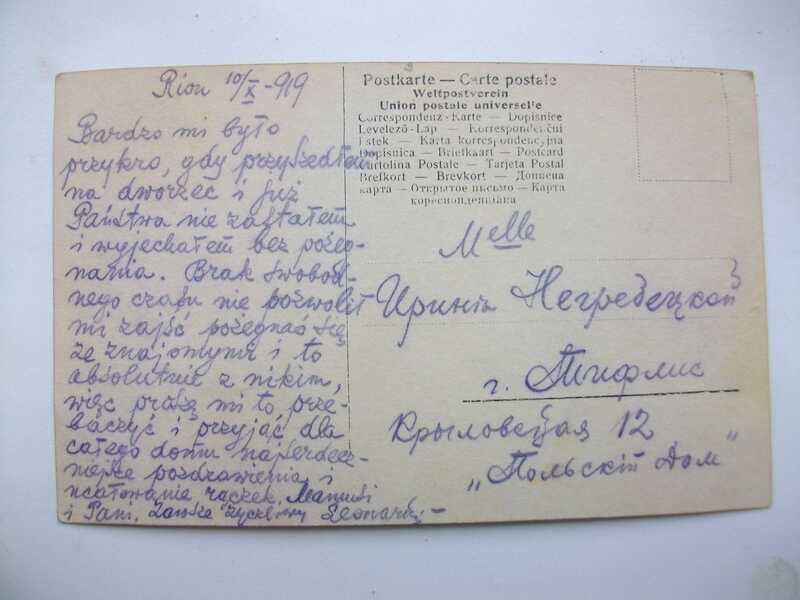 Rion 10/X - 919
Bardzo mi było
przykro, gdy przyszedłem
na dworzec i już
Państwa nie zastałem
i wyjechałem bez pożeg-
nania. Brak swobod-
nego czasu nie pozwolił
mi zajść pożegnać się
ze znajomymi i to
absolutnie z nikim,
więc proszę mi to prze-
baczyć i przyjąć dla
całego domu najserdecz-
niejsze pozdrowienia i
ucałowanie rączek, Mamusi
i Pani, Zawsze życzliwy Leonard
Postkarte — Carte postale
Weltpostverein
Union postale universelle
Correspondenz-Karte — Dopisnice
Levelező-Lap — Korrespondenční
lístek — Karta korrespondencyjna
Dopisnica — Briefkaart — Postcard
Cartolina Postale — Tarjeta Postal
Brefkort — Brevkort — Дописна
карта — Открытое письмо — Карта
кореспонденціина
Melle
Иринѣ Негребецкой
г. Тифлис
Крыловская 12
„Польскій Дом"